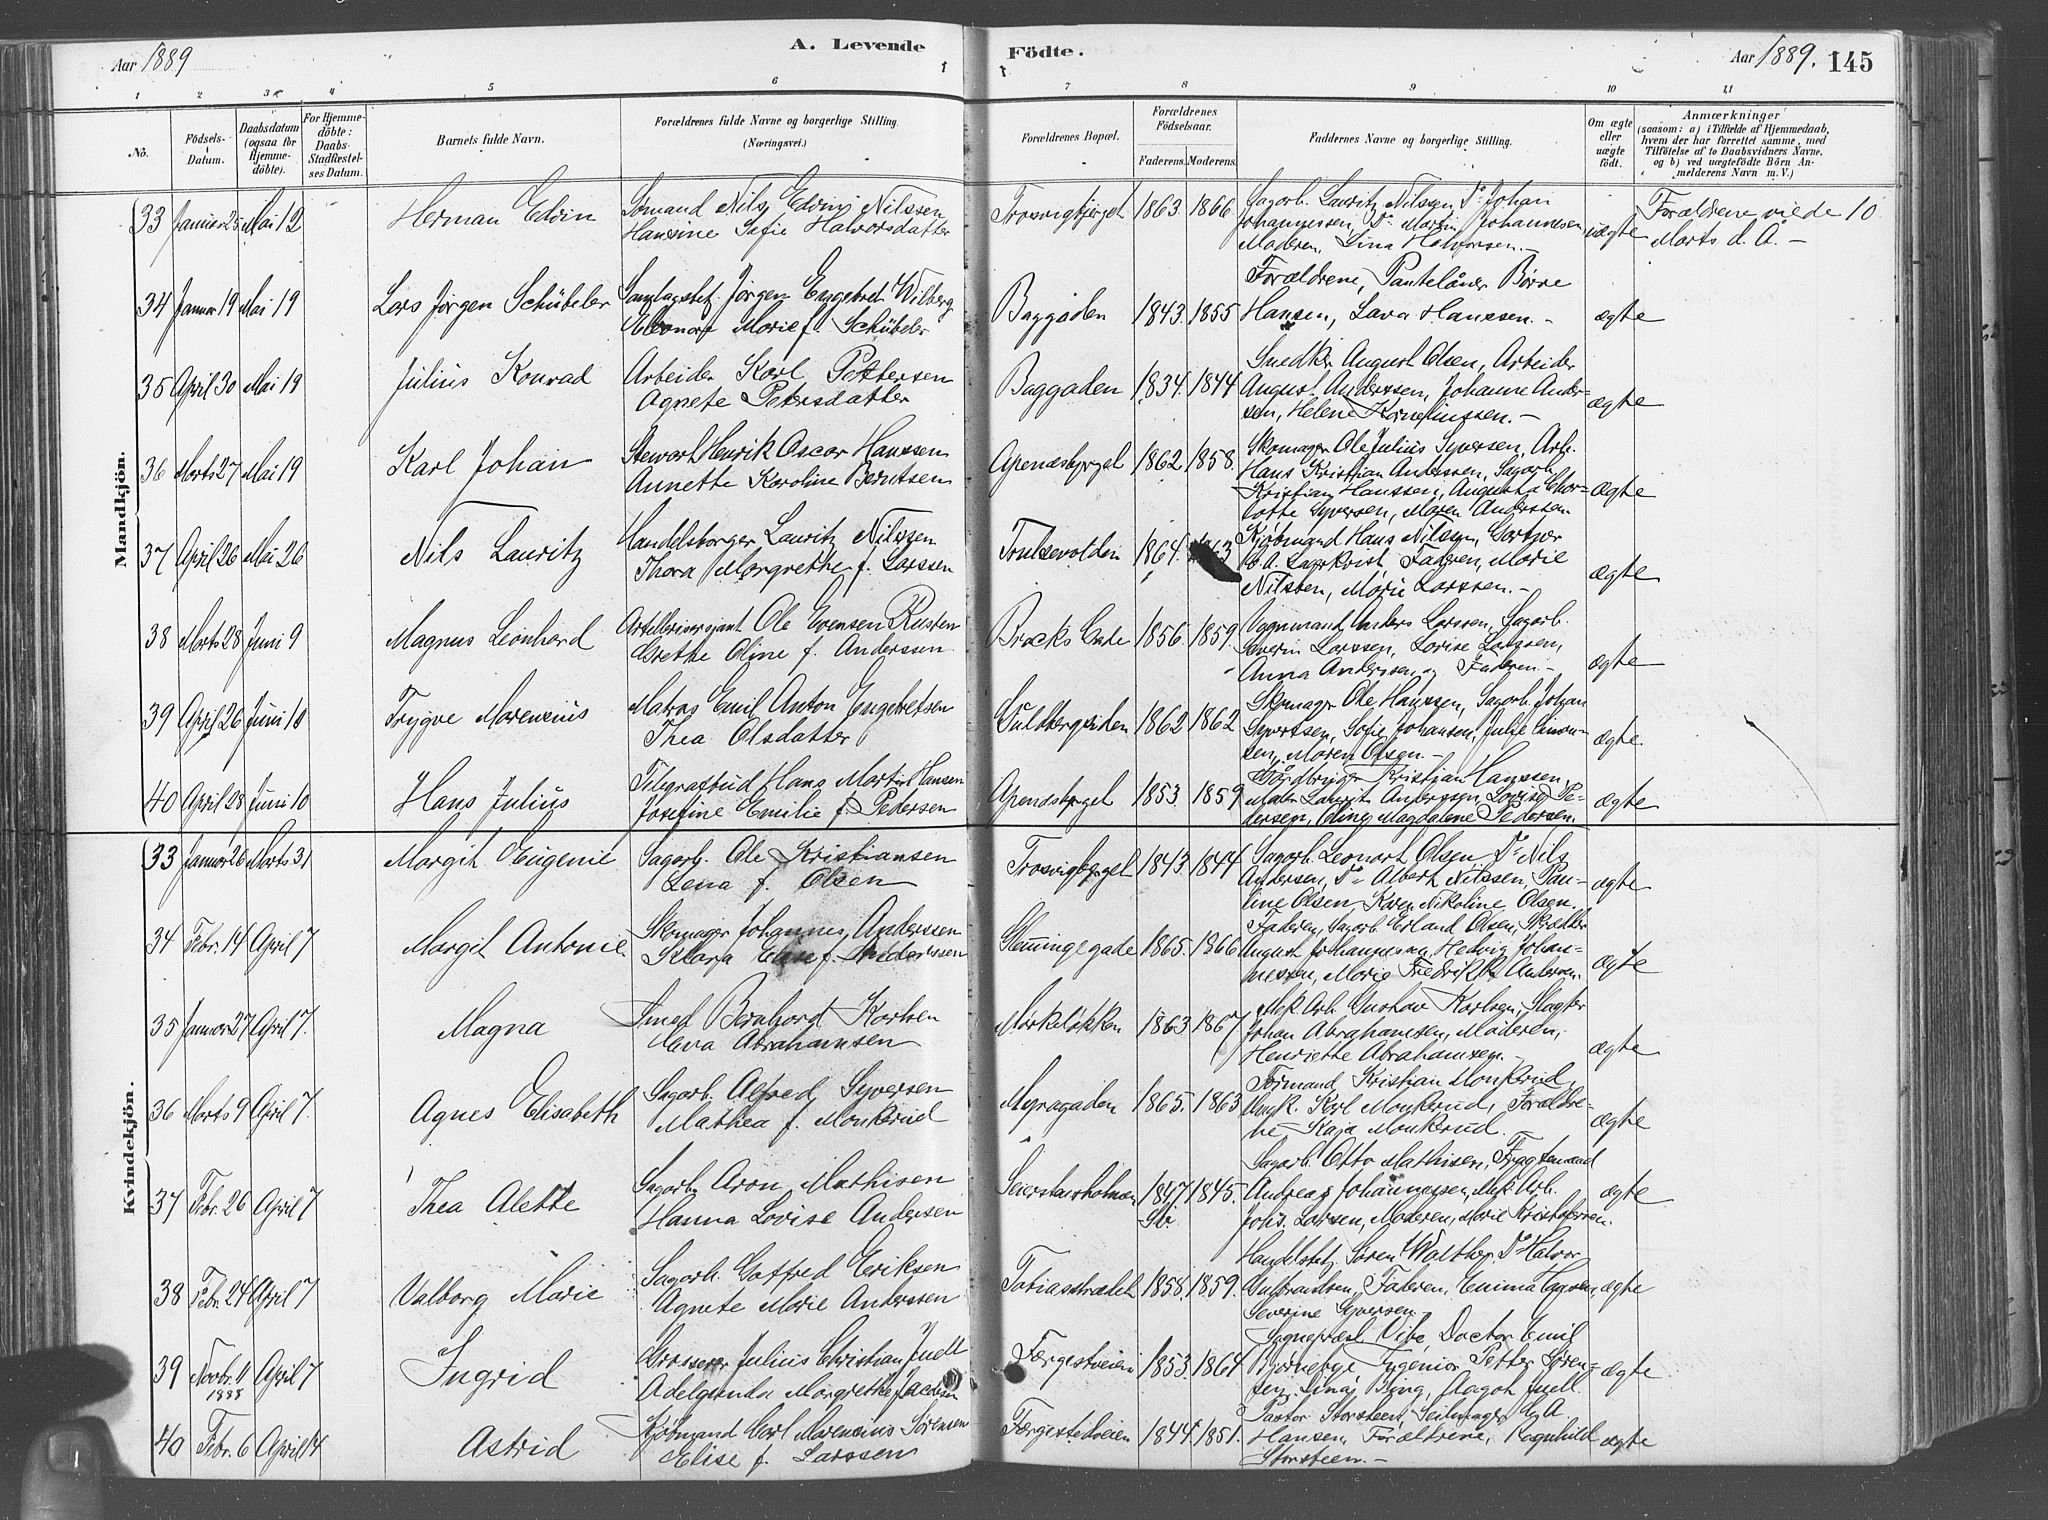 Aar 1889
A. Levende
Födte.
Aar 1889.
145
1 2 3 4 5 6 7 8 9 10 11
No.
Födsels-Datum.
Daabsdatum (ogsaa for Hjemme-döbte).
For Hjemme-döbte: Daabs-Stadfæstel-ses Datum.
Barnets fulde Navn.
Forældrenes fulde Navne og borgerlige Stilling.
(Næringsvei.)
Forældrenes Bopæl.
Forældrenes Födselsaar.
Faderens. Moderens.
Faddernes Navne og borgerlige Stilling.
Om ægte eller uægte födt.
Anmærkninger
(saasom: a) i Tilfælde af Hjemmedaab,
hvem der har forrettet samme, med
Tilföielse af to Daabsvidners Navne,
og b) ved uægtefödte Börn An-
melderens Navn m. V.)
Mandkjön.
33 Januar 25 Mai 12 Herman Edvin
Sømand Nils Edvin Nilssen
Hansine Sofie Halvorsdatter
Trosvigbjerget 1863. 1866.
Sagarb. Lauritz Nilssen, Do Johan
Johannessen, Do Martin Johannesen,
Moderen, Lina Halvorsen.-
uægte
Forældrene viede 10
Marts d. A. -
34 Januar 19 Mai 19 Lars Jörgen Schübeler
Jörgen Engebret Wilberg
Eleonore Marie f. Schübeler
Baggaden 1843. 1855
Forældrene, Pantelåner Børre
Hansen, Lava Hanssen. -
ægte
35 April 30 Mai 19 Julius Konrad
Arbeider Karl Pettersen
Agnete Petersdatter
Baggaden 1834. 1844
Snedker August Olsen, Arbeider
August Anderssen, Johanne Ander-
sen, Helene Korneliussen. -
ægte
36 Marts 27 Mai 19 Karl Johan
Stewart Henrik Oscar Hanssen
Annette Karoline Berntsen
Apenæsbjerget 1862. 1858.
Skomager Ole Julius Syversen, Arb.
Hans Kristian Anderssen, Sagarb.
Kristian Hanssen, Augusta Char-
lotte Syversen, Maren Anderssen
ægte
37 April 26 Mai 26 Nils Lauritz
Handelsborger Lauritz Nilssen
Thora Margrethe f. Larssen
Trulsevolden 1864.
Kjøbmand Hans Nilssen, Gartner
Lagerkvist, Faderen, Marie
Nilssen, Marie Larssen. -
ægte
38 Marts 28 Juni 9 Magnus Leonhard
Artillerisergjant Ole Evensen Rusten
Grethe Oline f. Anderssen
Brocks Gade 1856. 1859.
Vognmand Anders Larssen, Sagarb.
Severin Larssen, Lovise Larssen,
Anna Anderssen og Faderen. -
ægte
39 April 26 Juni 10 Trygve Marensius
Matros Emil Anton Engebretsen
Thea Olsdatter
Guldbergsiden 1862 1862
Skomager Ole Hanssen, Sagarb. Johan
Syvertsen, Sofie Johansen, Julie Simon-
sen, Maren Olsen. -
ægte.
40 April 28 Juni 10 Hans Julius
Telegrafbud Hans Martin Hansen
Josefine Emilie f. Pedersen
Apenæsbjerget 1853 1859
Gårdbruger Kristian Hanssen,
Maler Lauritz Anderssen, Lovise Pe-
dersen, Oline Magdalene Pedersen.
ægte
Kvindekjön.
33 Januar 26 Marts 31 Margit Eugenie
Sagarb. Ole Kristiansen
Lena f. Olsen
Trosvigbjerget 1843. 1844
Sagarb. Leonart Olsen, Do Nils
Andersen, Do Albert Nilssen, Pau-
line Olsen, Karen Nikoline Olsen.
ægte
34 Febr. 14 April 7 Margit Antonie.
Skomager Johannes Anderssen
Klara Elise f. Anderssen
Glemmingegade 1865. 1866
Faderen, Sagarb. Erland Olsen, Skrædder
August Johannessen, Hedvig Johan-
nessen, Marie Fredrikke Andersen.
ægte
35 Januar 27 April 7. Magna
Smed Bernhard Karlsen
Eva Abrahamsen
Mørkeløkken 1863 1867
Mek. Arb. Gustav Karlsen, Slagter
Johan Abrahamsen, Moderen,
Henriette Abrahamsen. -
ægte
36 Marts 9 April 7. Agnes Elisabeth
Sagarb. Alfred Syversen
Mathea f. Monkerud
Myragaden 1865. 1863
Formand Kristian Monkerud,
Karl Monkerud, Forældre-
ne - Kaja Monkerud.
ægte
37 Febr. 26 April 7 Thea Alette
Sagarb. Aron Mathisen
Hanna Lovise Andersen
Seierstensholmen 1847 1845.
Sagarb. Otto Mathisen, Fragtemand
Andreas Johannessen, Mek. Arb.
Johs. Larsen, Moderen, Marie Kristoffersen.
ægte
38 Febr. 24 April 7 Valborg Marie
Sagarb. Gotfred Eriksen
Agnete Marie Anderssen
Tobiasstrædet 1858. 1859.
Handelsbetj. Søren Walther, Do Halvor
Gulbrandsen, Faderen, Emma Hansen,
Severine Syversen.
ægte
39 Novbr. 11 1888 April 7 Ingrid
Grosserer Julius Christian Juell
Adelgunda Margrethe f. Jacobsen
Færgestedveien 1853. 1864
Sognepræst Vibe, Doctor Emil
Bjørneby, Ingeniør Petter Søren-
sen, Lina Bing, Aagot Juell
ægte
40 Febr. 6 April 14 Astrid
Kjøbmand Carl Marensius Sørensen
Elise f. Larssen
Færgestedveien 1844. 1851.
Pastor Storsteen, Seilmager A
Hansen, Forældrene, Ragnhild
Storsteen. -
ægte